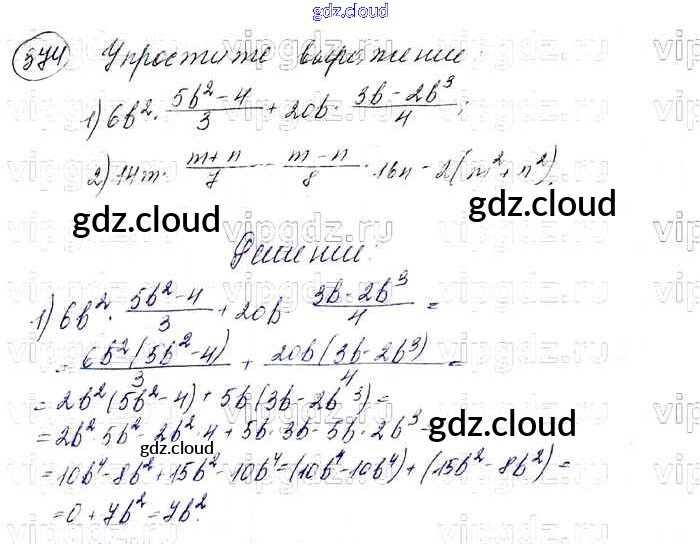 gdz.cloud
374. Упростите выражение:
1) 6b² · (5b² - 4)/3 + 20b · (3b - 2b³)/4;
2) 14m · (m + n)/7 - (m - n)/8 · 16n - 2(m² + n²).
gdz.cloud gdz.cloud
Решение:
1) 6b² · (5b² - 4)/3 + 20b · (3b - 2b³)/4 =
= 6b²(5b² - 4)/3 + 20b(3b - 2b³)/4 =
= 2b²(5b² - 4) + 5b(3b - 2b³) =
= 2b² · 5b² - 2b² · 4 + 5b · 3b - 5b · 2b³ =
gdz.cloud gdz.cloud
= 10b⁴ - 8b² + 15b² - 10b⁴ = (10b⁴ - 10b⁴) + (15b² - 8b²) =
= 0 + 7b² = 7b².